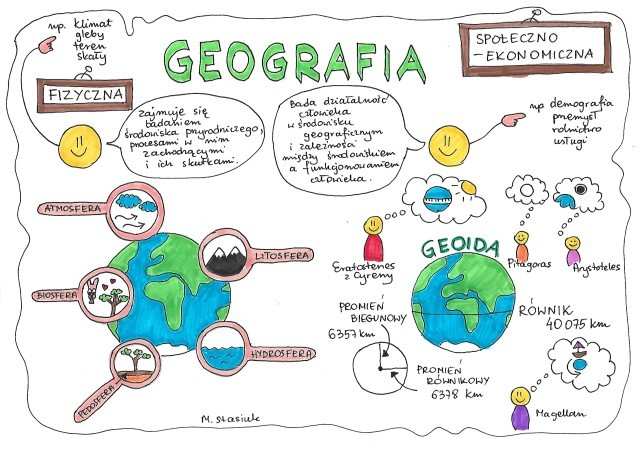 GEOGRAFIA
np. klimat
gleby
teren
skały
FIZYCZNA
Zajmuje się
badaniem
środowiska przyrodniczego,
procesami w nim
zachodzącymi
i ich skutkami.
SPOŁECZNO
-EKONOMICZNA
Bada działalność
człowieka
w środowisku
geograficznym
i zależności
między środowiskiem
a funkcjonowaniem
człowieka.
np demografia
przemysł
rolnictwo
usługi
ATMOSFERA
LITOSFERA
BIOSFERA
HYDROSFERA
PEDOSFERA
Eratostenes
z Cyreny
Pitagoras
Arystoteles
GEOIDA
PROMIEŃ
BIEGUNOWY
6357 km
RÓWNIK
40 075 km
PROMIEŃ
RÓWNIKOWY
6378 km
Magellan
M. Stasiuk